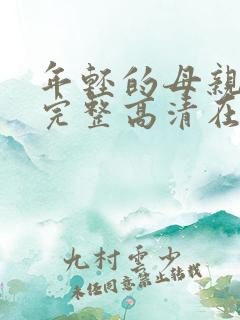 年轻的母亲
完整高清在
九村云少
未经同意禁止转载